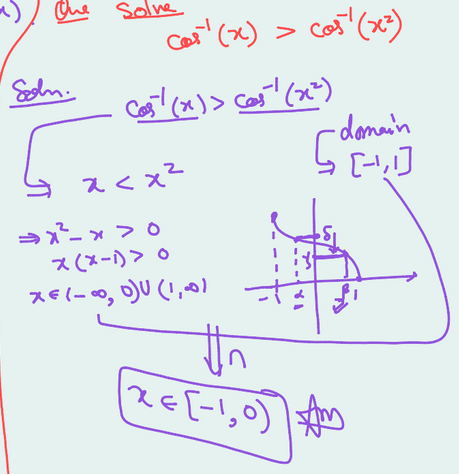 x) Que Solve
cos⁻¹(x) > cos⁻¹(x²)
Soln.
cos⁻¹(x) > cos⁻¹(x²)
domain
[-1,1]
x < x²
⇒ x² - x > 0
x(x-1) > 0
x ∈ (-∞, 0) ∪ (1, ∞)
δ
γ
-1 α β 1
∩
x ∈ [-1, 0) Ans